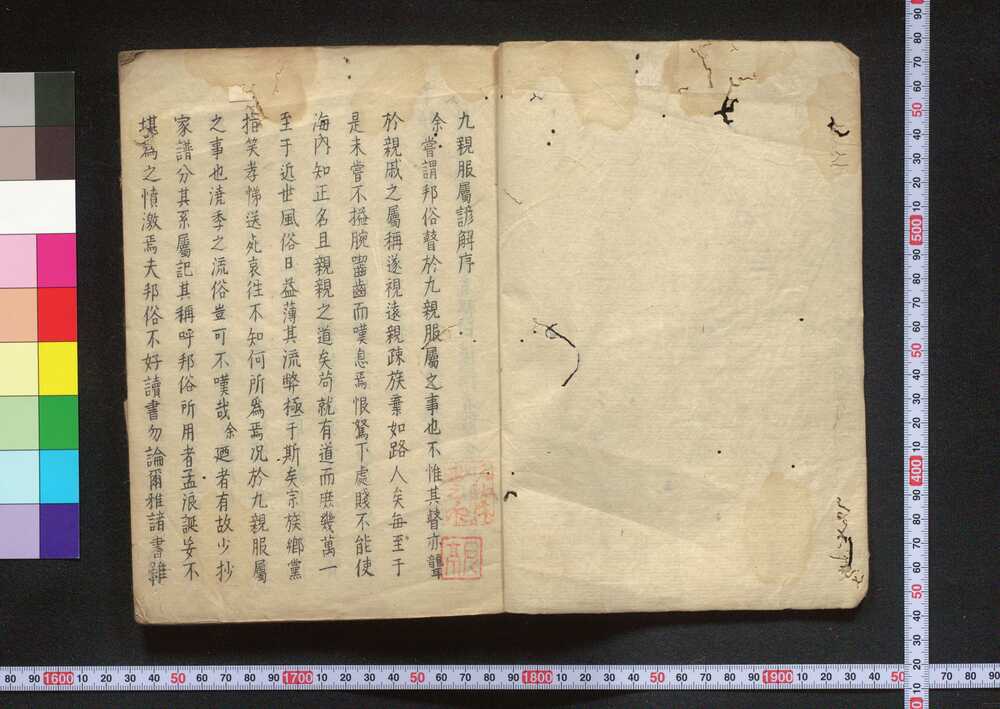 九親服屬諺解序
余嘗謂邦俗瞽於九親服屬之事也不惟其瞽亦聾
於親戚之屬稱遂視遠親疎族棄如路人矣每至于
是未嘗不搤腕齧齒而嘆息焉恨駑下處賤不能使
海內知正名且親親之道矣苟就有道而庶幾萬一
至于近世風俗日益薄其流弊極于斯矣宗族鄉黨
指笑孝悌送死哀往不知何所為焉况於九親服屬
之事也澆季之流俗豈可不嘆哉余廼者有故少抄
家譜分其系屬記其稱呼邦俗所用者孟浪誕妄不
堪為之憤激焉夫邦俗不好讀書勿論爾雅諸書雖